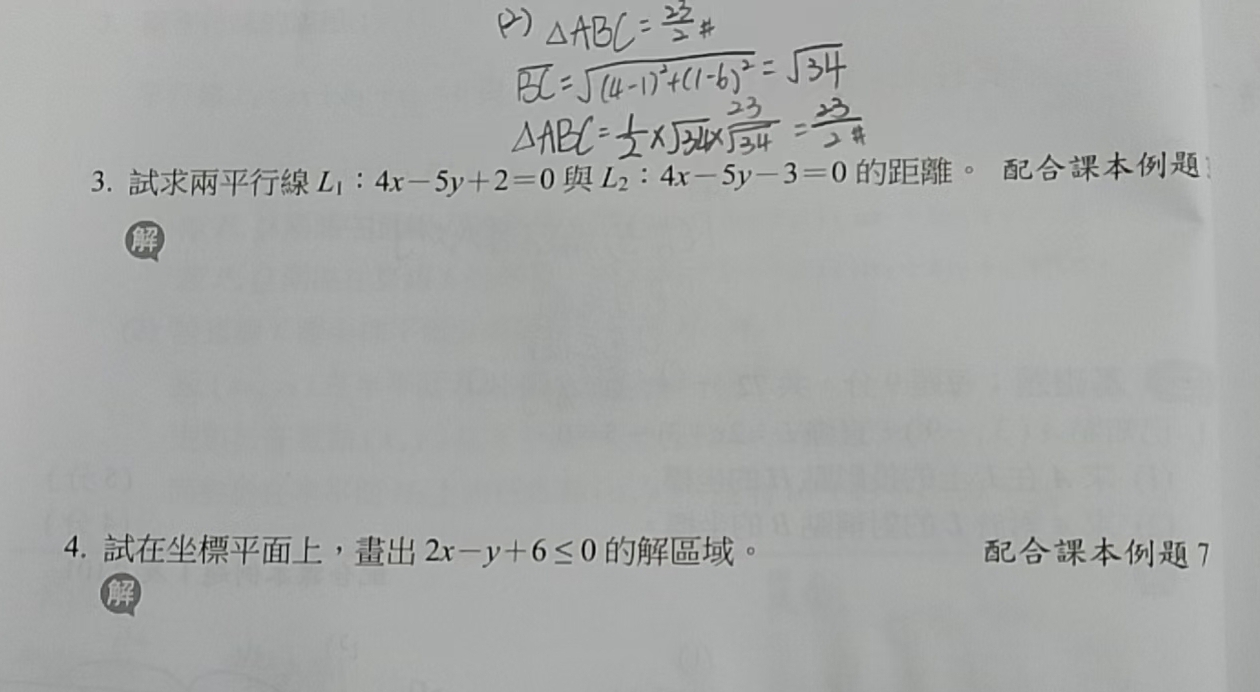 (2) △ABC=23/2 #
BC=√(4-1)²+(1-6)²=√34
△ABC=1/2×√34×23/√34=23/2 #
3. 試求兩平行線 L₁：4x－5y＋2＝0 與 L₂：4x－5y－3＝0 的距離。 配合課本例題
解
4. 試在坐標平面上，畫出 2x－y＋6≤0 的解區域。 配合課本例題 7
解